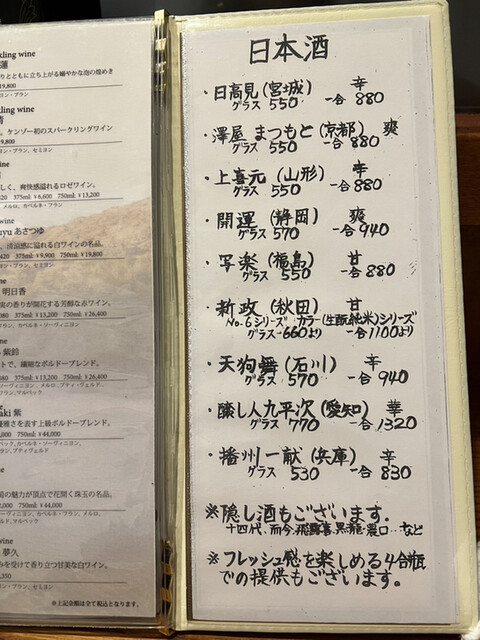 kling wine
蓮
りとともに立ち上がる細やかな泡の煌めき
19,800
kling wine
清
。ケンゾー初のスパークリングワイン
9,800
ヨン・ブラン、セミヨン
しく、爽快感溢れるロゼワイン。
420 375ml: ¥6,600 750ml: ¥13,200
メルロ、カベルネ・フラン
wine
uyu あさつゆ
、清涼感に溢れる白ワインの名品。
420 375ml: ¥9,900 750ml: ¥19,800
ヨン・ブラン、セミヨン
明日香
実の香りが開花する芳醇な赤ワイン。
080 375ml: ¥13,200 750ml: ¥26,400
ー・ソーヴィニヨン
紫鈴
トで、繊細なボルドーブレンド。
080 375ml: ¥13,200 750ml: ¥26,400
aki 紫
優雅さを表す上級ボルドーブレンド。
000 750ml: ¥44,000
の魅力が頂点で花開く珠玉の名品。
,000 750ml: ¥44,000
wine
夢久
みを受けて香り立つ甘美な白ワイン。
,350
ヨン・ブラン、セミヨン
※上記金額は全て税込となります。
日本酒
・日高見(宮城) 辛
グラス 550 一合 880
・澤屋 まつもと(京都) 爽
グラス 550 一合 880
・上喜元(山形) 辛
グラス 550 一合 880
・開運(静岡) 爽
グラス 570 一合 940
・写楽(福島) 甘
グラス 550 一合 880
・新政(秋田) 甘
No.6シリーズ カラー(生酛純米)シリーズ
グラス 660より 一合 1100より
・天狗舞(石川) 辛
グラス 570 一合 940
・醸し人九平次(愛知) 華
グラス 770 一合 1320
・播州一献(兵庫) 辛
グラス 530 一合 830
※隠し酒もございます。
十四代、而今、飛露喜、黒龍、濃口…など
※フレッシュ感を楽しめる4合瓶
での提供もございます。